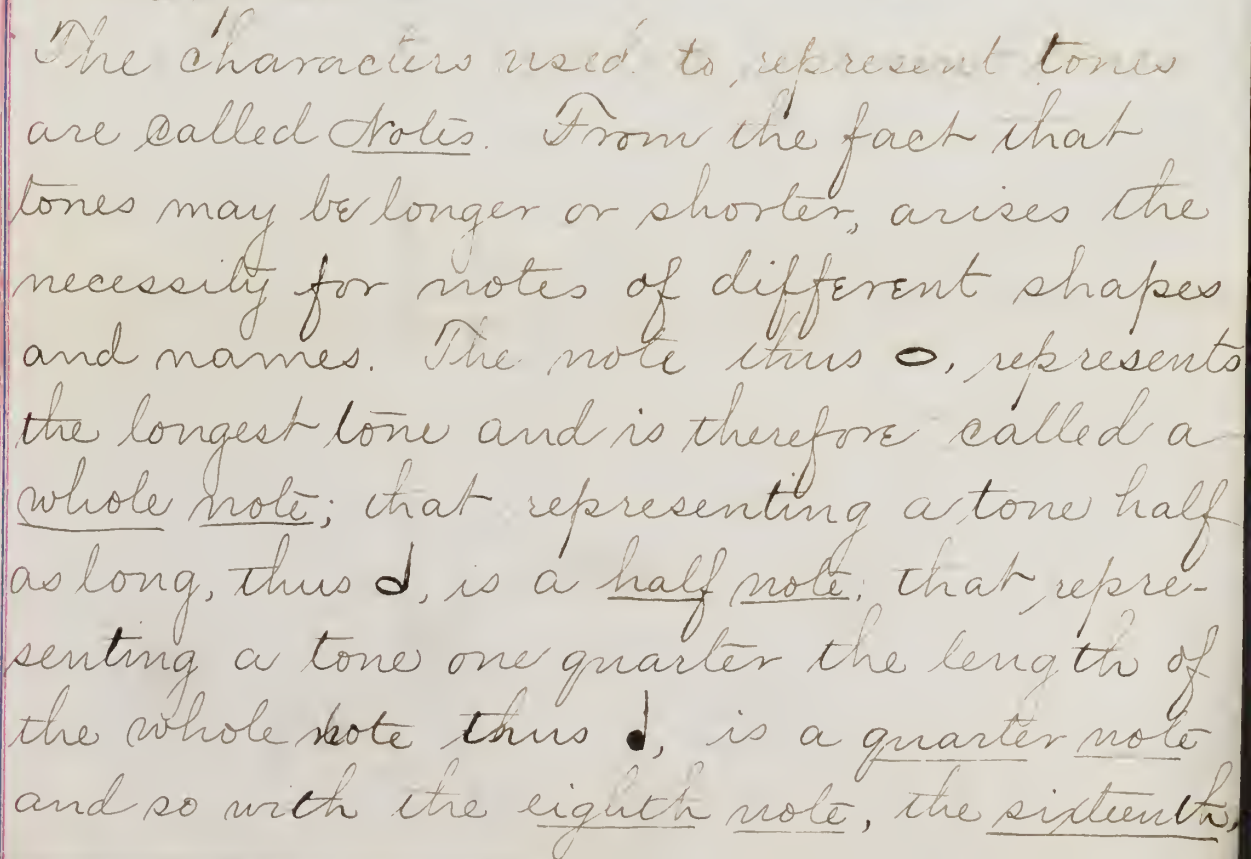 The characters used to represent tones
are called Notes. From the fact that
tones may be longer or shorter, arises the
necessity for notes of different shapes
and names. The note thus 𝅝, represents
the longest tone and is therefore called a
whole note; that representing a tone half
as long, thus 𝅗𝅥, is a half note; that repre-
senting a tone one quarter the length of
the whole note thus ♩, is a quarter note
and so with the eighth note, the sixteenth,